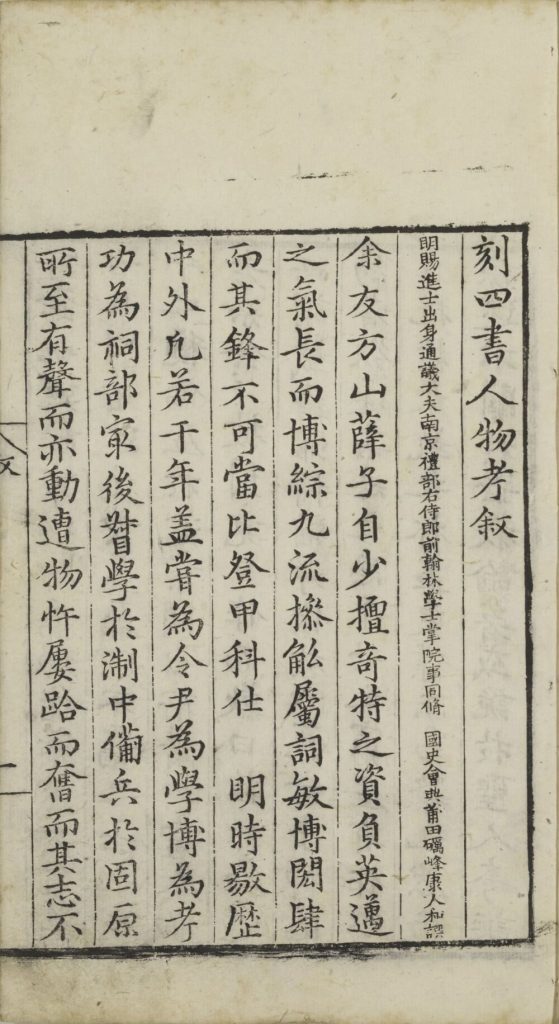 刻四書人物考叙
明賜進士出身通議大夫南京禮部右侍郎前翰林學士掌院事同脩 國史會典莆田礪峰康大和譔
余友方山薛子自少擅奇特之資負英邁
之氣長而博綜九流摻觚屬詞敏博閎肆
而其鋒不可當比登甲科仕 明時敭歷
中外凡若干年盖嘗為令尹為學博為考
功為祠部冣後督學於淛中備兵於固原
所至有聲而亦動遭物忤屢跲而奮而其志不